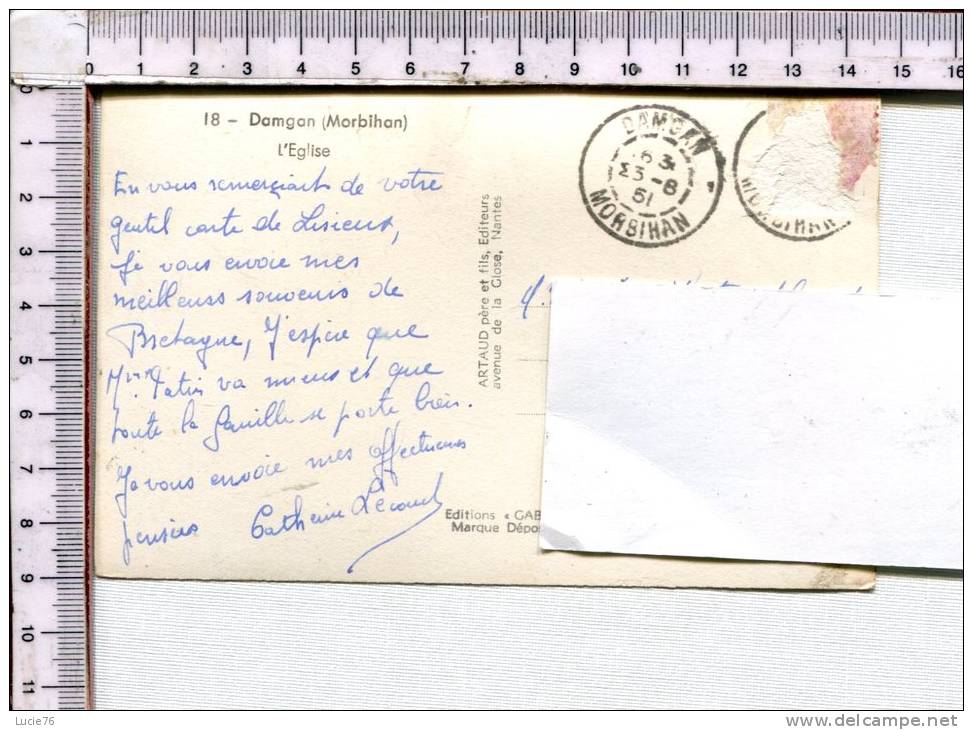 0 1 2 3 4 5 6 7 8 9 10 11 12 13 14 15 16
0
1
2
3
4
5
6
7
8
9
10
11
18 – Damgan (Morbihan)
L'Eglise
En vous remerçiant de votre
gentil carte de Lisieux,
Je vous envoie mes
meilleurs souvenirs de
Bretagne, J'espère que
Mme. Patin va mieux et que
toute la famille se porte bien.
Je vous envoie mes affectueuses
pensées Catherine
ARTAUD père et fils, Editeurs
avenue de la Close, Nantes
Editions « GAB
Marque Dépo
DAMGAN
23-8
51
MORBIHAN
MORBIHAN
Lucie76
delcampe.net